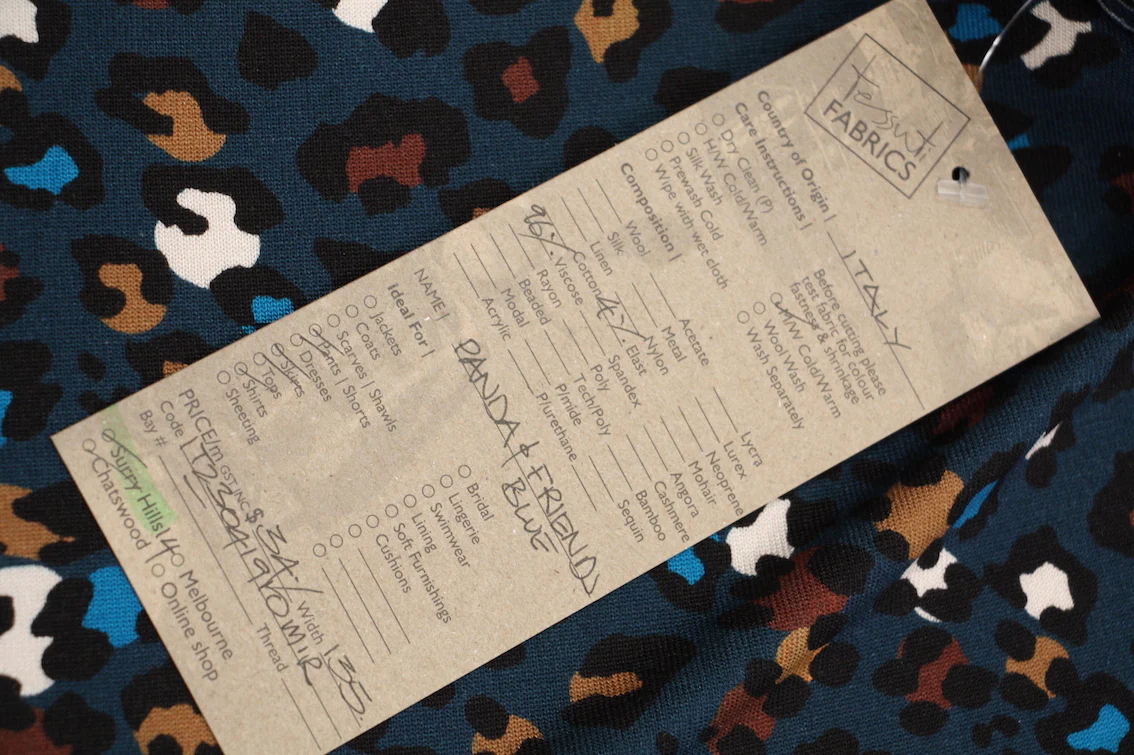 Tessuti
FABRICS
Country of Origin | ITALY
Care Instructions |
Dry Clean (P)
H/W Cold/Warm
Silk Wash
Prewash Cold
Wipe with wet cloth
Before cutting please
test fabric for colour
fastness & shrinkage
H/W Cold/Warm
Wool Wash
Wash Separately
Composition |
Wool
Silk
Linen
Cotton
96% Viscose
Rayon
Beaded
Modal
Acrylic
Acetate
Metal
Nylon
4% Elast
Spandex
Poly
Tech/Poly
P/mide
P/urethane
Lycra
Lurex
Neoprene
Mohair
Angora
Cashmere
Bamboo
Sequin
NAME | PANDA & FRIENDS
BLUE
Ideal For |
Jackets
Coats
Scarves | Shawls
Pants | Shorts
Dresses
Skirts
Tops
Shirts
Sheeting
Bridal
Lingerie
Swimwear
Lining
Soft Furnishings
Cushions
PRICE/m GST INC $ 34.- Width 135.
Code
Bay # Thread
Surry Hills 40 Melbourne
Chatswood | Online shop